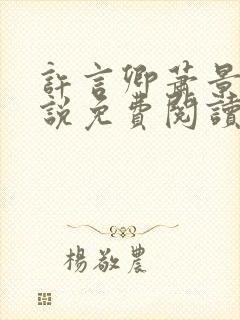 許言卿蕭景
說免費閱讀
楊敬農